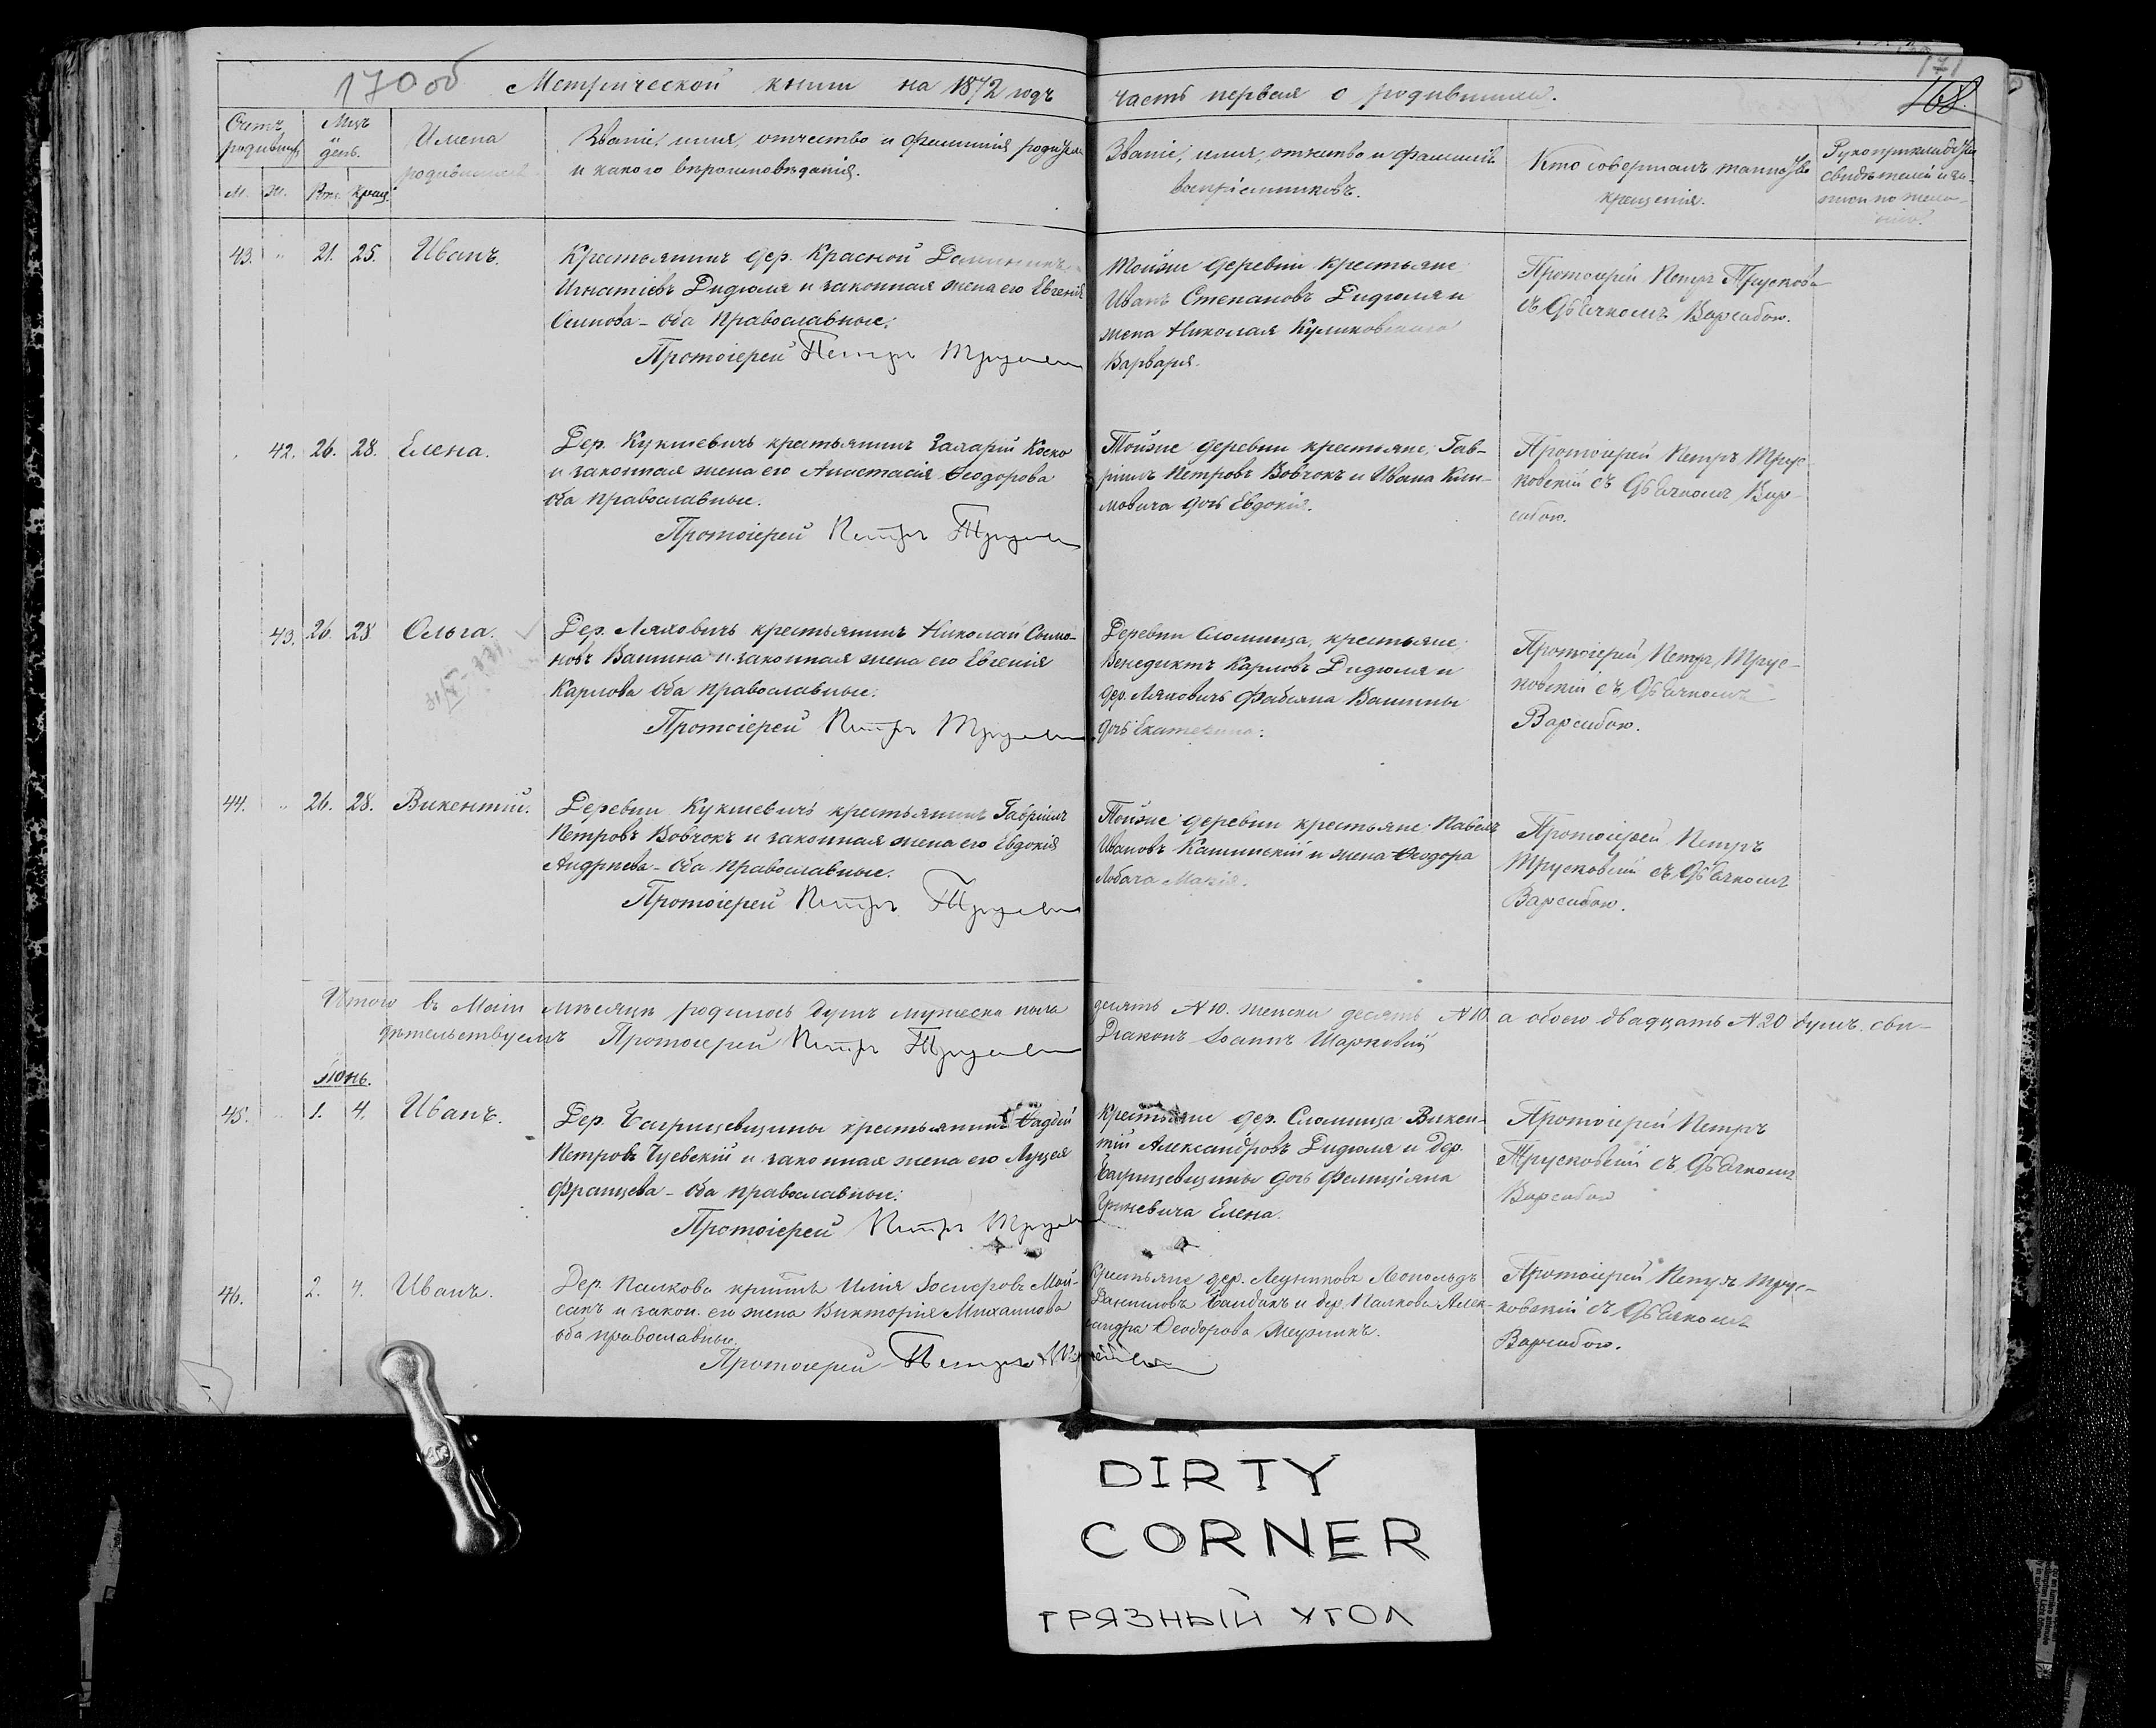 170 об
Метрической книги на 1872 годъ часть первая о родившихся.
171
168.
Счетъ родившихъ
Мцъ день.
Имена родившихся
Званіе, имя, отчество и фамилія родителей
и какого вѣроисповѣданія.
Званіе, имя, отчество и фамилія
воспріемниковъ.
Кто совершалъ таинство
крещенія.
Рукоприкладство
свидѣтелей и за-
писи по жела-
нію.
М. Ж. Рож. Крещ.
43. " 21. 25. Иванъ.
Крестьянинъ дер. Красной
Игнатіевъ Дидюля и законная жена его Евгенія
Осипова - оба Православные.
Протоіерей Петръ
Тойже деревни крестьяне:
Иванъ Степановъ Дидюля и
жена Николая Куликовскаго
Варвара.
Протоіерей Петръ
съ Дьячкомъ Варсабою.
42. 26. 28. Елена.
Дер. Кукшевичъ крестьянинъ Коско
и законная жена его Анастасія Ѳеодорова
оба православные.
Протоіерей Петръ
Тойже деревни крестьяне: Гав-
ріилъ Петровъ Вовчокъ и Ивана Кли-
мовича дочь Евдокія.
Протоіерей Петръ Трус-
ковскій съ Дьячкомъ Вар-
сабою.
43. 26. 28. Ольга.
Дер. Ляховичъ крестьянинъ Николай Симо-
новъ Вашина и законная жена его Евгенія
Карлова оба православные.
Протоіерей Петръ
Деревни Сломища, крестьяне:
Венедиктъ Карловъ Дидюля и
дер. Ляховичъ Фабіана Вашины
дочь Екатерина.
Протоіерей Петръ Трус-
ковскій съ Дьячкомъ
Варсабою.
44. " 26. 28. Викентій.
Деревни Кукшевичъ крестьянинъ Гавріилъ
Петровъ Вовчокъ и законная жена его Евдокія
Андреева - Оба Православные.
Протоіерей Петръ
Тойже деревни крестьяне: Павелъ
Ивановъ Кашинскій и жена Ѳеодора
Лобача Марія.
Протоіерей Петръ
Трусковскій съ Дьячкомъ
Варсабою.
Итого въ Маіи мѣсяцѣ родилось душъ мужеска пола десять № 10. женска десять № 10. а обоего двадцать № 20 душъ. Сви-
дѣтельствуемъ Протоіерей Петръ Діаконъ Іоаннъ
Іюнь.
45. 1. 4. Иванъ.
Дер. крестьянинъ Ѳаддей
Петровъ и законная жена его Луцея
Францева - Оба православные.
Протоіерей Петръ
Крестьяне дер. Сломища Викен-
тій Александровъ Дидюля и дер.
дочь Фелиціана
Гриневича Елена.
Протоіерей Петръ
Трусковскій съ Дьячкомъ
Варсабою
46. 2. 4. Иванъ.
Дер. Палкова Илія Мой-
и закон. его жена Викторія Михаилова
оба православные.
Протоіерей Петръ
Крестьяне дер. Леопольдъ
Даниловъ и дер. Палкова Алек-
сандра Ѳеодорова
Протоіерей Петръ Трус-
ковскій съ Дьячкомъ
Варсабою.
DIRTY
CORNER
ГРЯЗНЫЙ УГОЛ